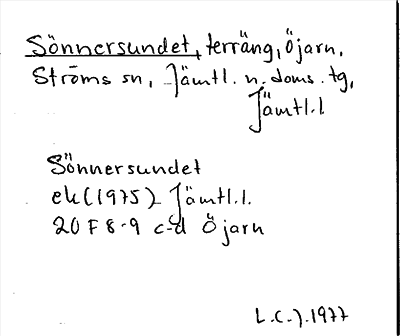 Sönnersundet, terräng, Öjarn,
Ströms sn, Jämtl. n. doms. tg,
Jämtl.l
Sönnersundet
ek (1975) Jämtl.l.
20 F 8-9 c-d Öjarn
L.C.J. 1977